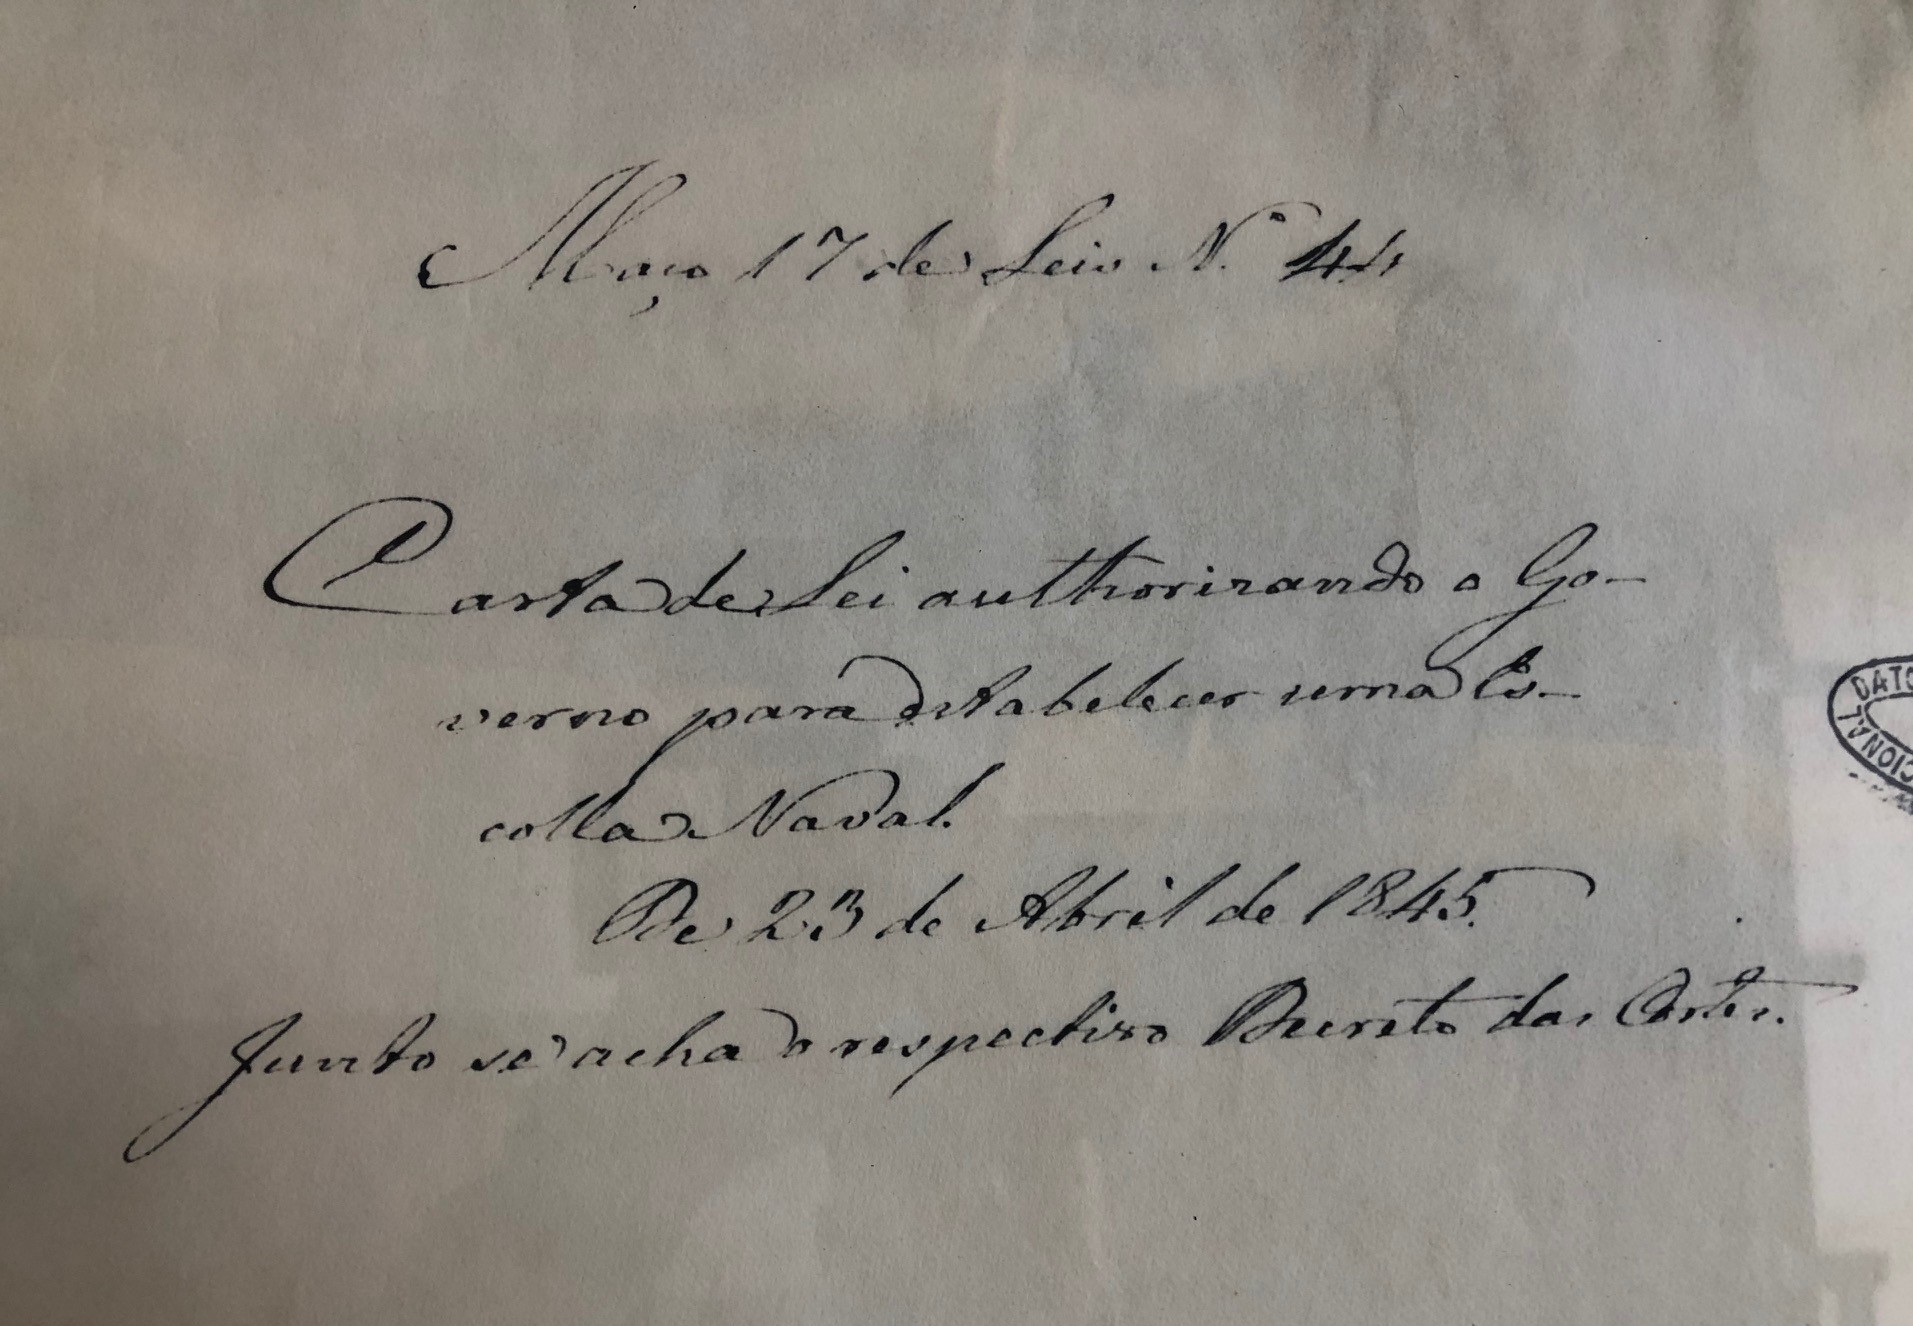 Maço 17 de Leis N.º 44
Carta de Lei authorizando o Go-
verno para estabelecer uma Es-
colla Naval.
De 23 de Abril de 1845.
Junto se acha o respectivo Decreto das Cortes.
DATO
CIONAL